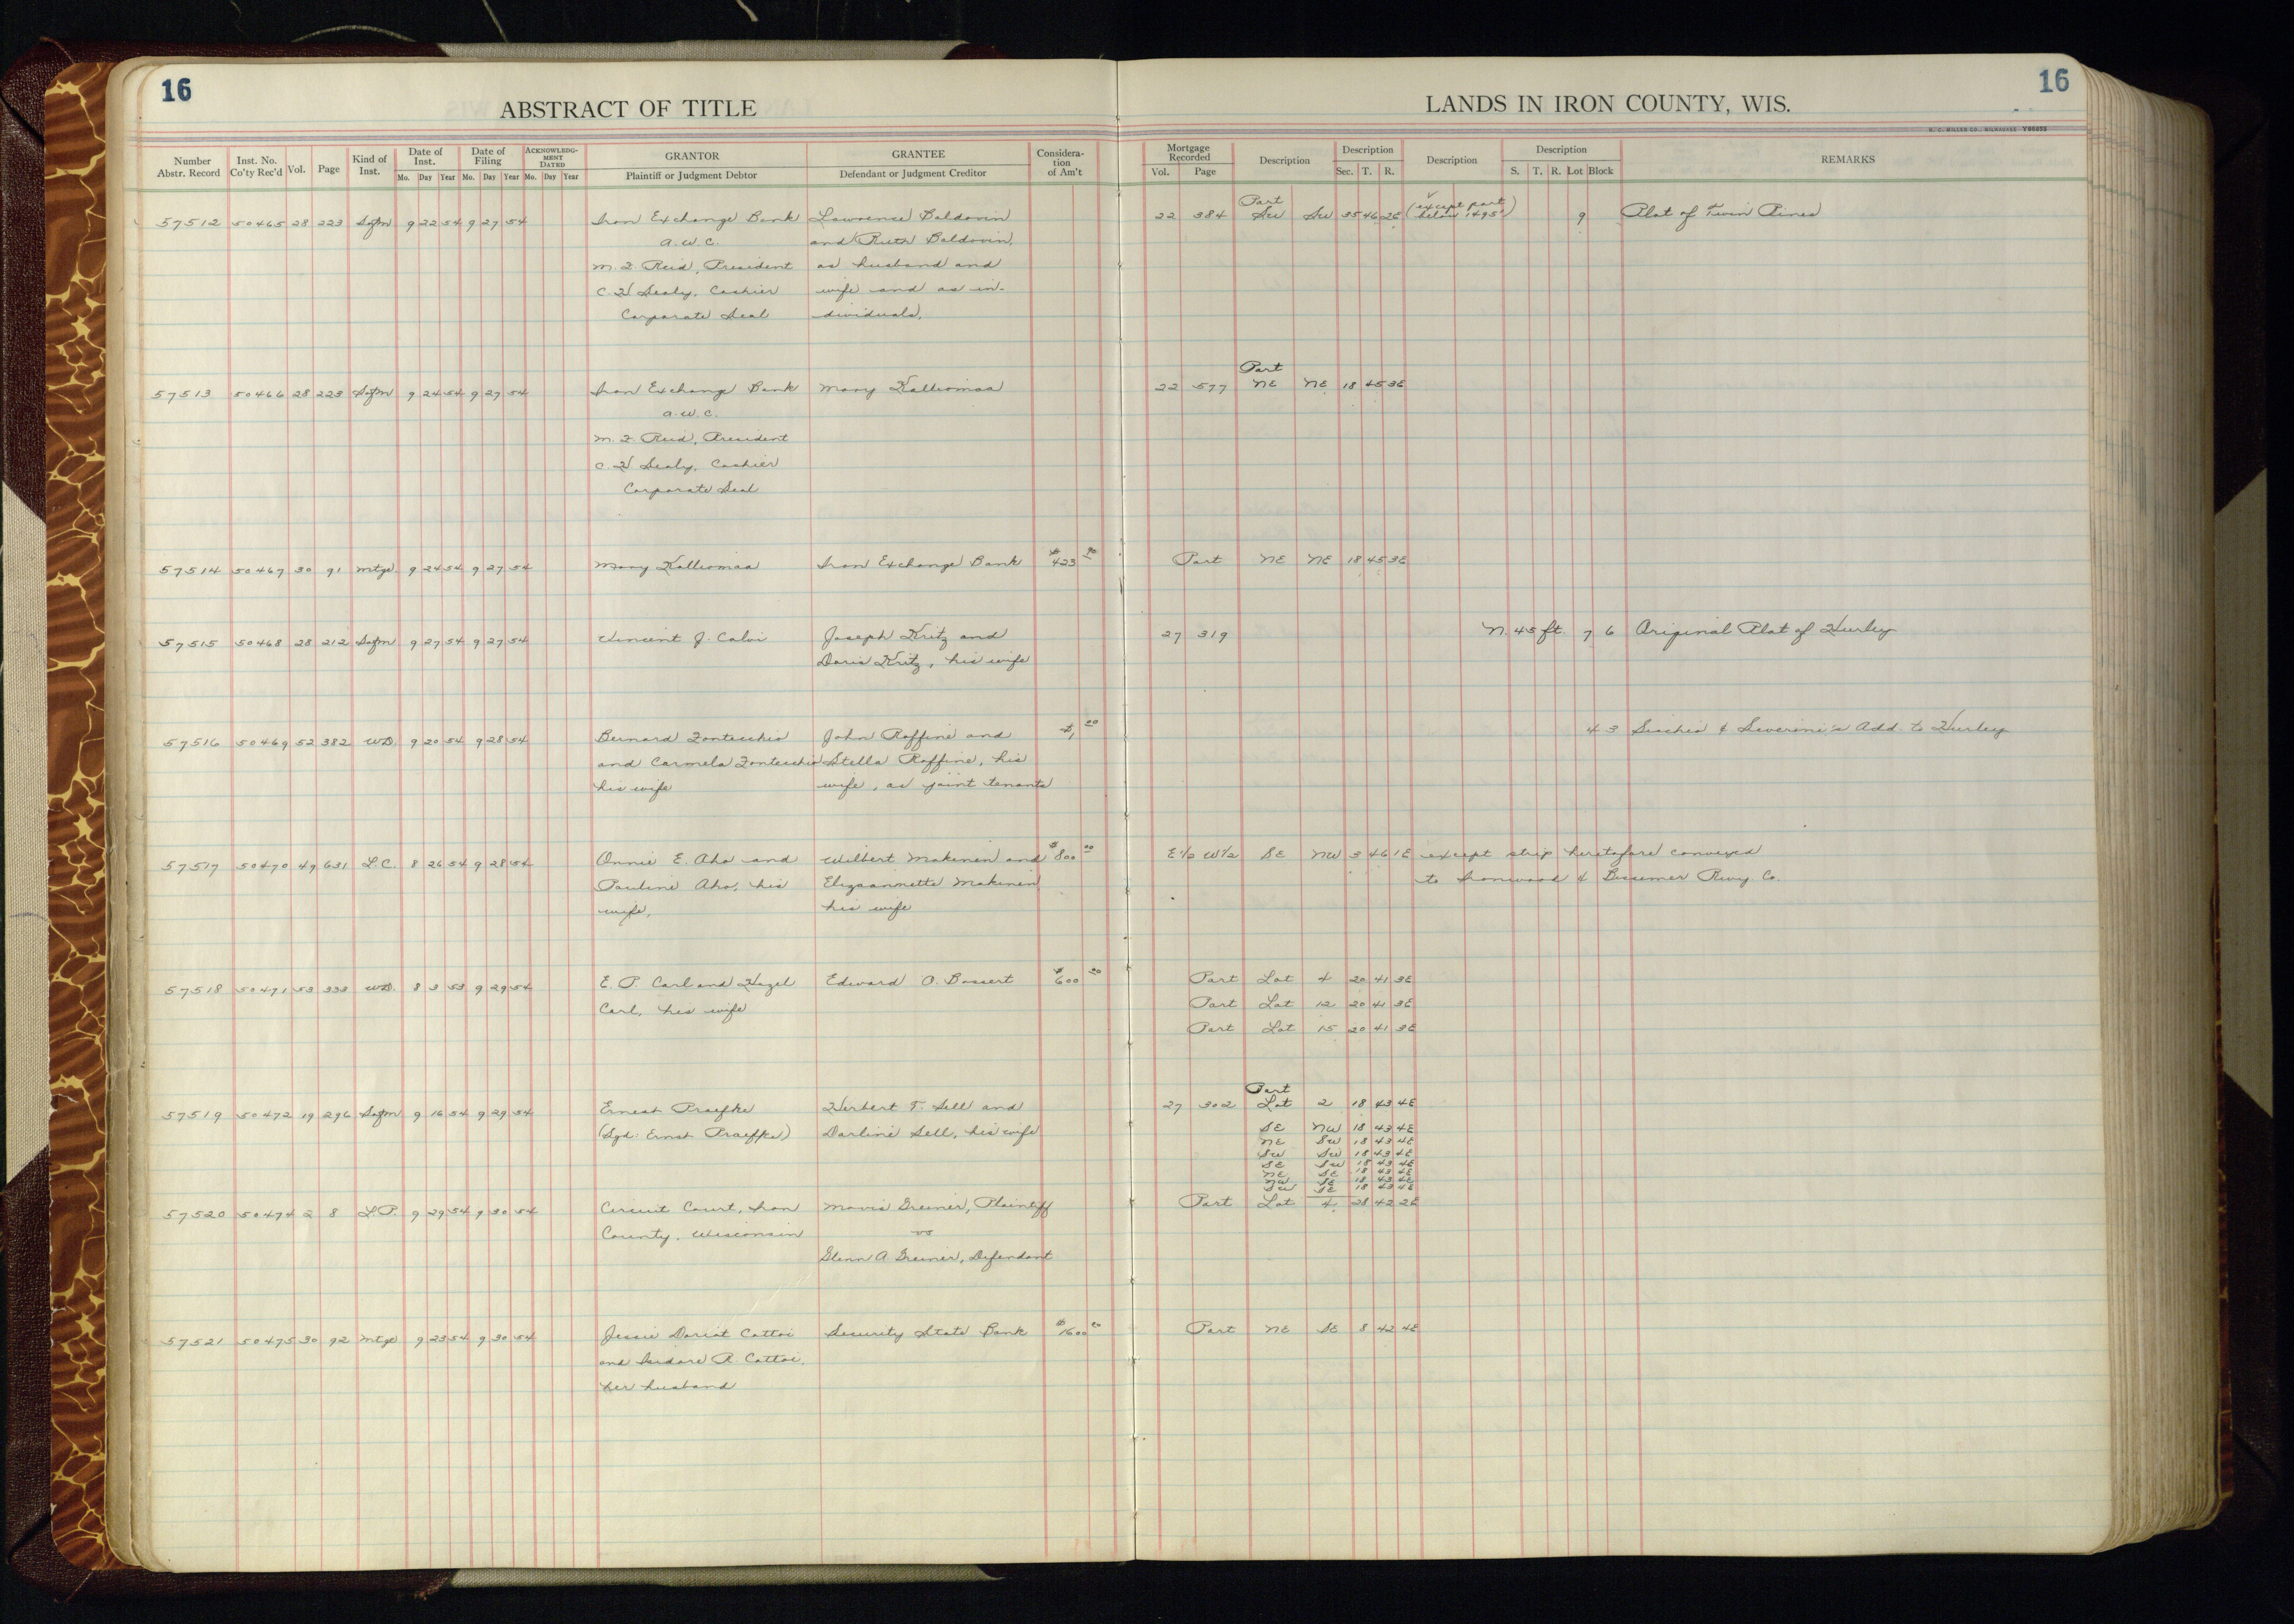 16
16
ABSTRACT OF TITLE
LANDS IN IRON COUNTY, WIS.
H. C. MILLER CO., MILWAUKEE Y86853
Number Abstr. Record
Inst. No. Co'ty Rec'd
Vol.
Page
Kind of Inst.
Date of Inst.
Mo. Day Year
Date of Filing
Mo. Day Year
ACKNOWLEDGMENT DATED
Mo. Day Year
GRANTOR
Plaintiff or Judgment Debtor
GRANTEE
Defendant or Judgment Creditor
Consideration of Am't
Mortgage Recorded
Vol. Page
Description
Description
Sec. T. R.
Description
Description
S. T. R. Lot Block
REMARKS
Part
57512 50465 28 223 Sofm 9 22 54 9 27 54 Iron Exchange Bank Lawrence Baldovin 22 384 SW SW 35 46 2E (except part below 1495') 9 Plat of Twin Pines
A.W.C. and Ruth Baldovin,
M. F. Reid, President as husband and
C. H. Sealy, Cashier wife and as in-
Corporate Seal dividuals.
Part
57513 50466 28 223 Sofm 9 24 54 9 27 54 Iron Exchange Bank Mary Kalliomaa 22 577 NE NE 18 45 3E
A.W.C.
M. F. Reid, President
C. H. Sealy, Cashier
Corporate Seal
57514 50467 30 91 Mtge 9 24 54 9 27 54 Mary Kalliomaa Iron Exchange Bank $423 90 Part NE NE 18 45 3E
57515 50468 28 212 Sofm 9 27 54 9 27 54 Vincent J. Calvi Joseph Kritz and 27 319 N. 45 ft. 7 6 Original Plat of Hurley
Doris Kritz, his wife
57516 50469 52 382 WD. 9 20 54 9 28 54 Bernard Fontecchio John Raffine and $1, 00 4 3 & Severine's Add. to Hurley
and Carmela Fontecchio Stella Raffine, his
his wife wife, as joint tenants
57517 50470 49 631 L.C. 8 26 54 9 28 54 Onnie E. Aho and Wilbert Makinen and $800 00 E½ W½ SE NW 3 46 1E except strip heretofore conveyed
Pauline Aho, his Makinen to Ironwood & Bessemer Rwy. Co.
wife, his wife
57518 50471 53 333 WD. 8 3 53 9 29 54 E. P. Carl and Hazel Edward O. Bossert $600 00 Part Lot 4 20 41 3E
Carl, his wife Part Lot 12 20 41 3E
Part Lot 15 20 41 3E
Part
57519 50472 19 296 Sofm 9 16 54 9 29 54 Ernest Praefke Herbert F. Sell and 27 302 Lot 2 18 43 4E
(Sgd: Ernst Praefke) Darline Sell, his wife SE NW 18 43 4E
NE SW 18 43 4E
SW SW 18 43 4E
SE SW 18 43 4E
NE SE 18 43 4E
NW SE 18 43 4E
SW SE 18 43 4E
57520 50474 2 8 L.P. 9 29 54 9 30 54 Circuit Court, Iron Mavis Greiner, Plaintiff Part Lot 4 28 42 2E
County, Wisconsin vs
Glenn A Greiner, Defendant
57521 50475 30 92 Mtge 9 23 54 9 30 54 Jessie Doriot Cattoi Security State Bank $1600 00 Part NE SE 8 42 4E
and Isidore A. Cattoi,
her husband